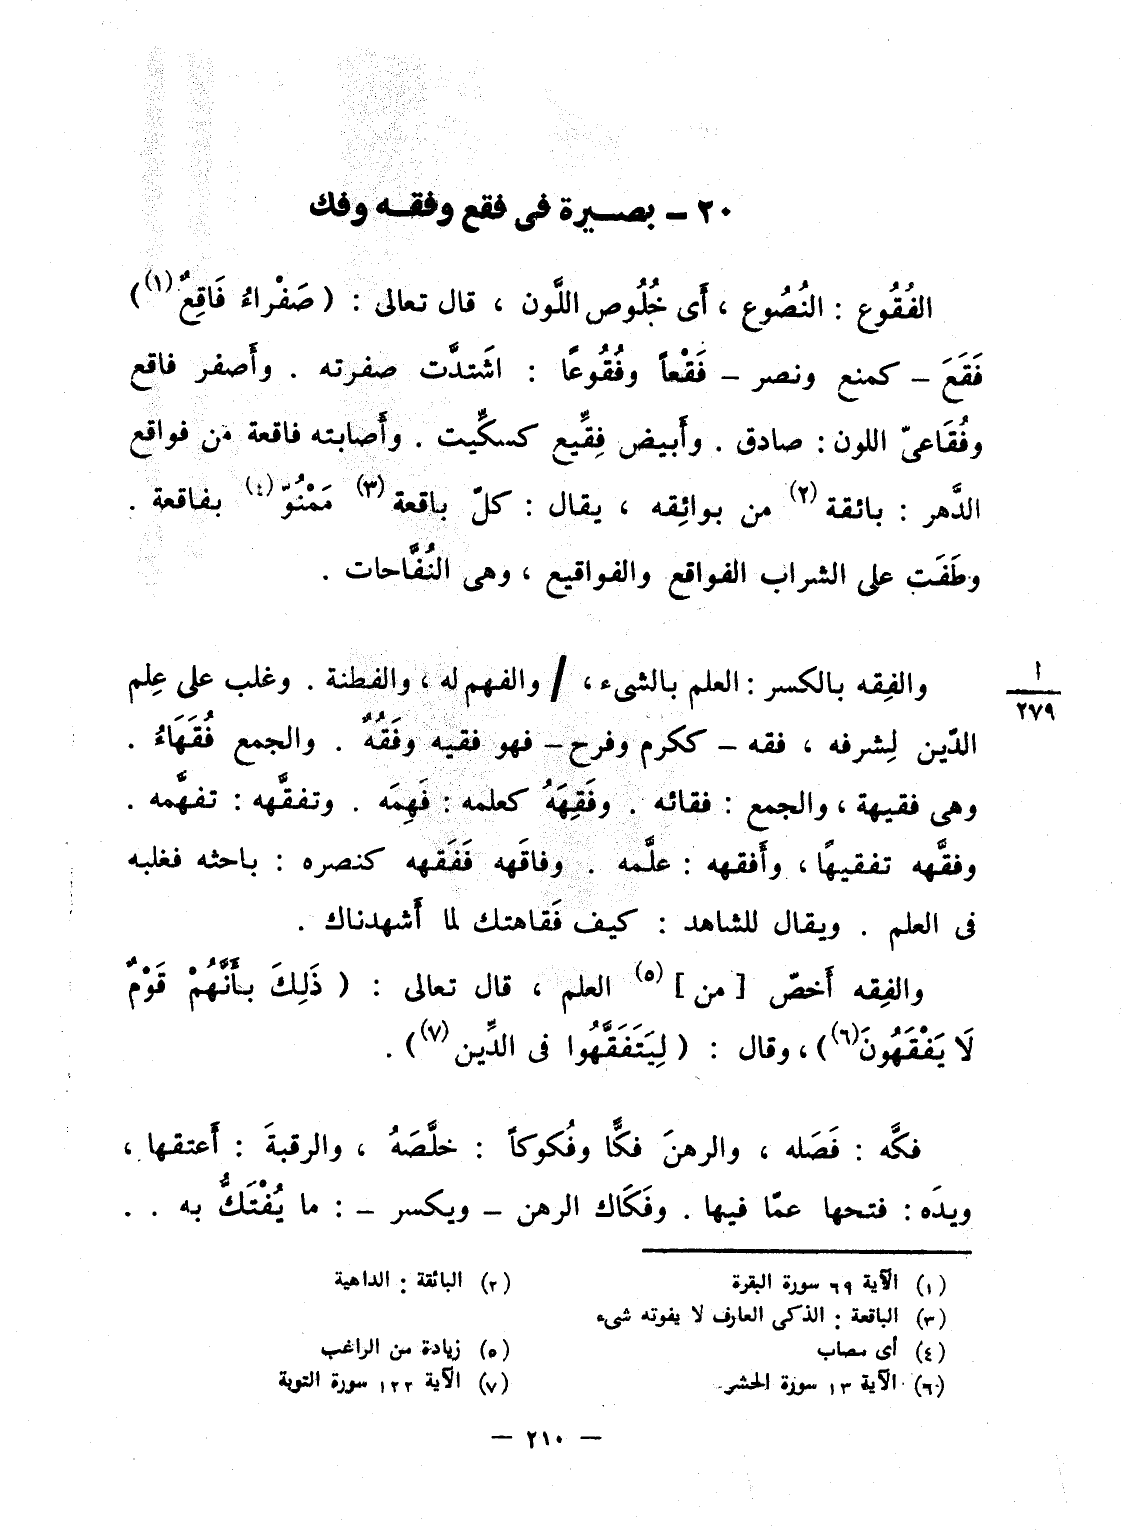 ٢٠ – بصيرة فى فقع وفقه وفك
الفُقُوع : النُصُوع ، أَى خُلُوص اللَّون ، قال تعالى : ( صَفْراءُ فَاقِعٌ(١))
فَقَعَ – كمنع ونصر – فَقْعاً وفُقُوعًا : اشَتدَّت صفرته . وأَصفر فاقع
وفُقَاعىّ اللون : صادق . وأَبيض فِقِّيع كسكِّيت . وأَصابته فاقعة من فواقع
الدَّهر : بائقة(٢) من بوائِقه ، يقال : كلّ باقعة(٣) مَمْنُوّ(٤) بفاقعة .
وطَفَت على الشراب الفواقع والفواقيع ، وهى النُفَّاحات .
والفِقه بالكسر : العلم بالشىء ، / والفهم له ، والفطنة . وغلب على عِلم
ا
٢٧٩
الدّين لِشرفه ، فقه – ككرم وفرح – فهو فقيه وفَقُهٌ . والجمع فُقَهَاءُ .
وهى فقيهة ، والجمع : فقائه . وفَقِهَهُ كعلمه : فَهِمَه . وتفقَّهه : تفهَّمه .
وفقَّهه تفقيهًا ، وأَفقهه : علَّمه . وفاقَهه فَفَقهه كنصره : باحثه فغلبه
فى العلم . ويقال للشاهد : كيف فَقاهتك لما أَشهدناك .
والفِقه أَخصّ [ من ](٥) العلم ، قال تعالى : ( ذَلِكَ بأَنَّهُمْ قَوْمٌ
لَا يَفْقَهُونَ(٦)) ، وقال : ( لِيَتَفَقَّهُوا فى الدِّين(٧)) .
فكَّه : فَصَله ، والرهنَ فكًّا وفُكوكاً : خلَّصَهُ ، والرقبةَ : أَعتقها ،
ويدَه : فتحها عمّا فيها . وفَكَاك الرهن – ويكسر – : ما يُفْتَكُّ به . .
(١) الآية ٦٩ سورة البقرة (٢) البائقة : الداهية
(٣) الباقعة : الذكى العارف لا يفوته شىء
(٤) أى مصاب (٥) زيادة من الراغب
(٦) الآية ١٣ سورة الحشر (٧) الآية ١٢٢ سورة التوبة
— ٢١٠ —